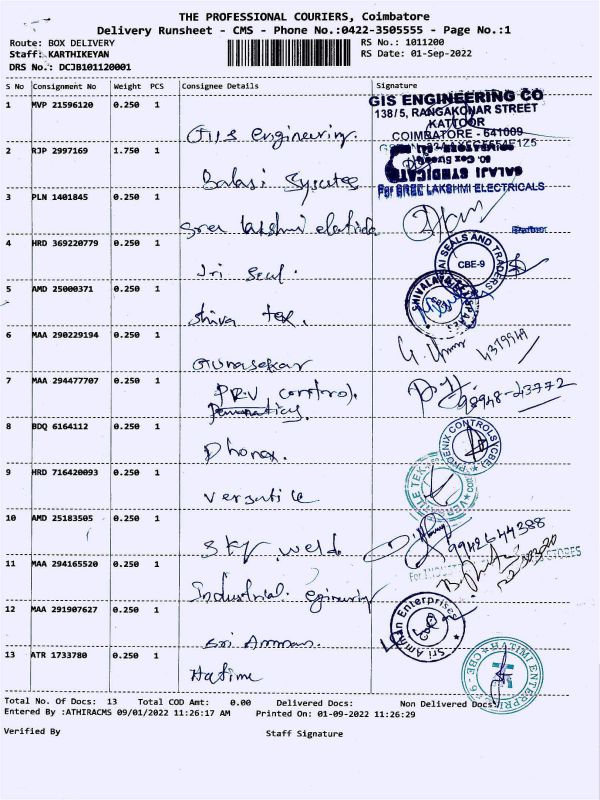 THE PROFESSIONAL COURIERS, Coimbatore
Delivery Runsheet - CMS - Phone No.:0422-3505555 - Page No.:1
Route: BOX DELIVERY RS No.: 1011200
Staff: KARTHIKEYAN RS Date: 01-Sep-2022
DRS No.: DCJB101120001
S No Consignment No Weight PCS Consignee Details Signature
1 MVP 21596120 0.250 1
GIS ENGINEERING CO
138/5, RANGAKONAR STREET
KATTOOR
COIMBATORE - 641009
GIIS engineering.
2 RJP 2997169 1.750 1
BALAJI SYNDICATE
Balaji
For SREE LAKSHMI ELECTRICALS
3 PLN 1401845 0.250 1
Sree lakshmi
Partner
4 HRD 369220779 0.250 1
SAI SEALS AND TRADERS
CBE-9
Seal.
5 AMD 25000371 0.250 1
Shiva Tex.
6 MAA 290229194 0.250 1
Gunasekar
7 MAA 294477707 0.250 1
PRV control.
98948-43772
8 BDQ 6164112 0.250 1
PHOENIX CONTROLS(CBE)
9 HRD 716420093 0.250 1
VERSATILE TEK
Versatile
10 AMD 25183505 0.250 1
9942644388
Sky weld
11 MAA 294165520 0.250 1
STORES
Industrial
12 MAA 291907627 0.250 1
Sri Amman Enterprises
Sri Amman.
13 ATR 1733780 0.250 1
HATIMI ENTERPRISES - CBE
Hatime
Total No. Of Docs: 13 Total COD Amt: 0.00 Delivered Docs: Non Delivered Docs:
Entered By :ATHIRACMS 09/01/2022 11:26:17 AM Printed On: 01-09-2022 11:26:29
Verified By Staff Signature